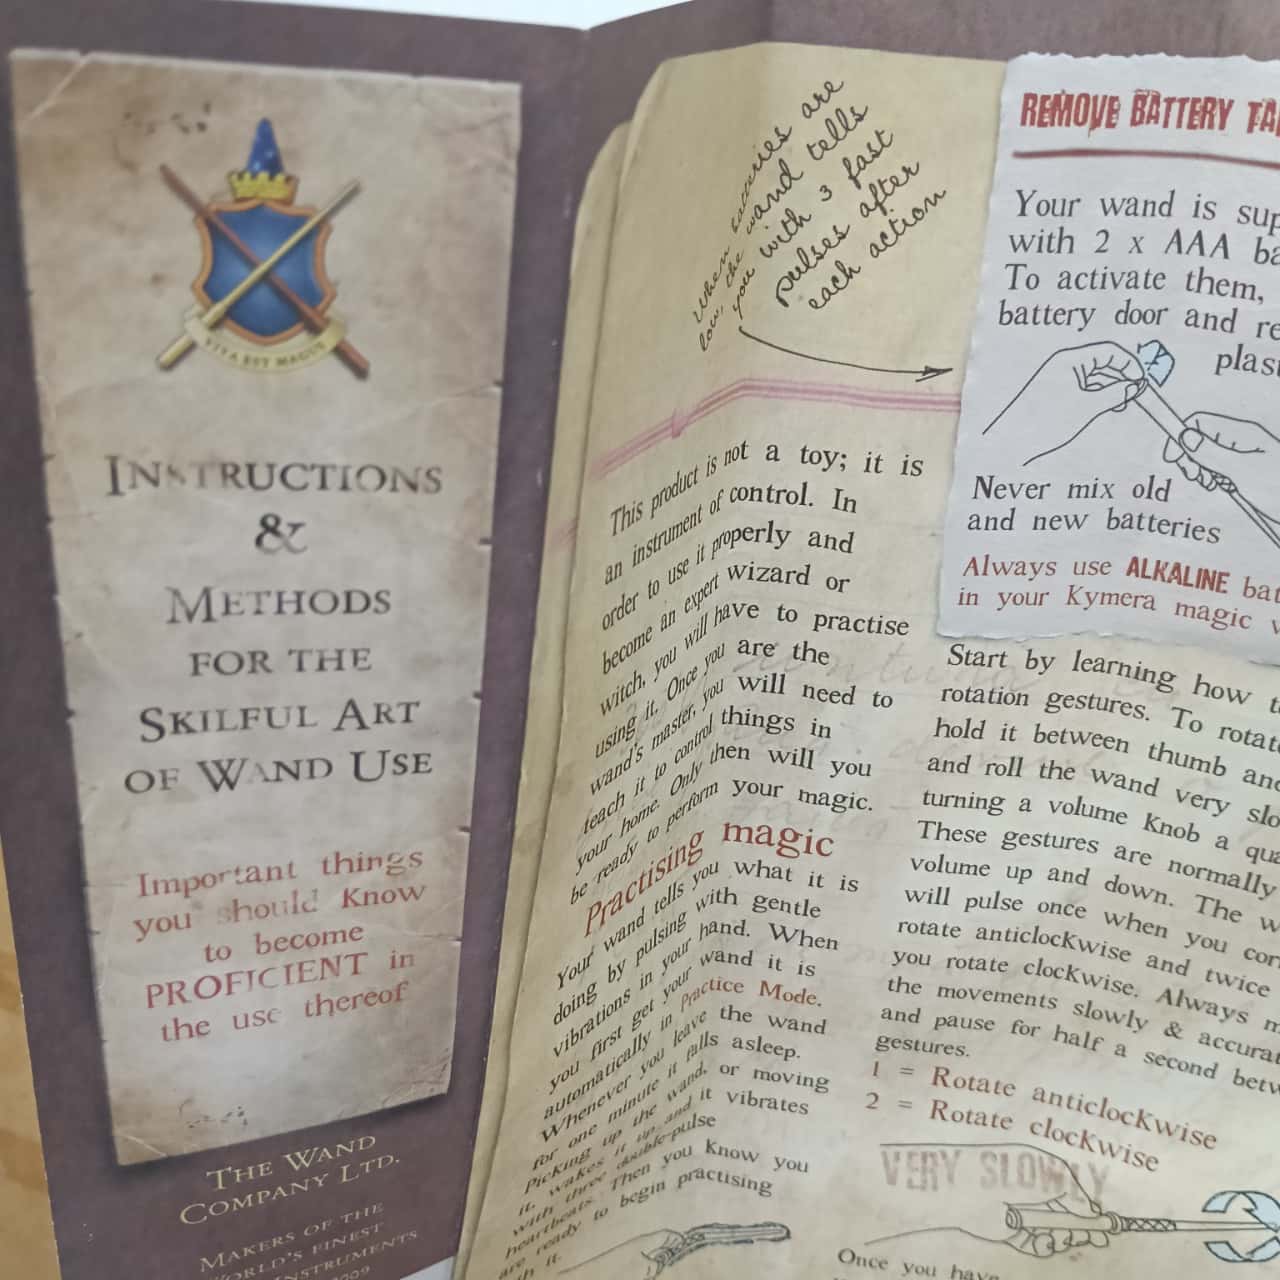 VITA EST MAGUS
INSTRUCTIONS
&
METHODS
FOR THE
SKILFUL ART
OF WAND USE
Important things
you should Know
to become
PROFICIENT in
the use thereof
THE WAND
COMPANY LTD.
MAKERS OF THE
WORLD'S FINEST
INSTRUMENTS
2009
When batteries are
low, the wand tells
you with 3 fast
pulses after
each action
This product is not a toy; it is
an instrument of control. In
order to use it properly and
become an expert wizard or
witch, you will have to practise
using it. Once you are the
wand's master, you will need to
teach it to control things in
your home. Only then will you
be ready to perform your magic.
Practising magic
Your wand tells you what it is
doing by pulsing with gentle
vibrations in your hand. When
you first get your wand it is
automatically in Practice Mode.
Whenever you leave the wand
for one minute it falls asleep.
Picking up the wand, or moving
it, wakes it up and it vibrates
with three double-pulse
heartbeats. Then you Know you
are ready to begin practising
with it.
REMOVE BATTERY
Your wand is
with 2 x AAA
To activate them,
battery door and
Never mix old
and new batteries
Always use ALKALINE
in your Kymera magic
Start by learning how
rotation gestures. To
hold it between thumb
and roll the wand very
turning a volume Knob a
These gestures are normally
volume up and down. The
will pulse once when you
rotate anticlocKwise and twice
you rotate clocKwise. Always
the movements slowly &
and pause for half a second
gestures.
1 = Rotate anticlocKwise
2 = Rotate clocKwise
VERY SLOWLY
Once you have